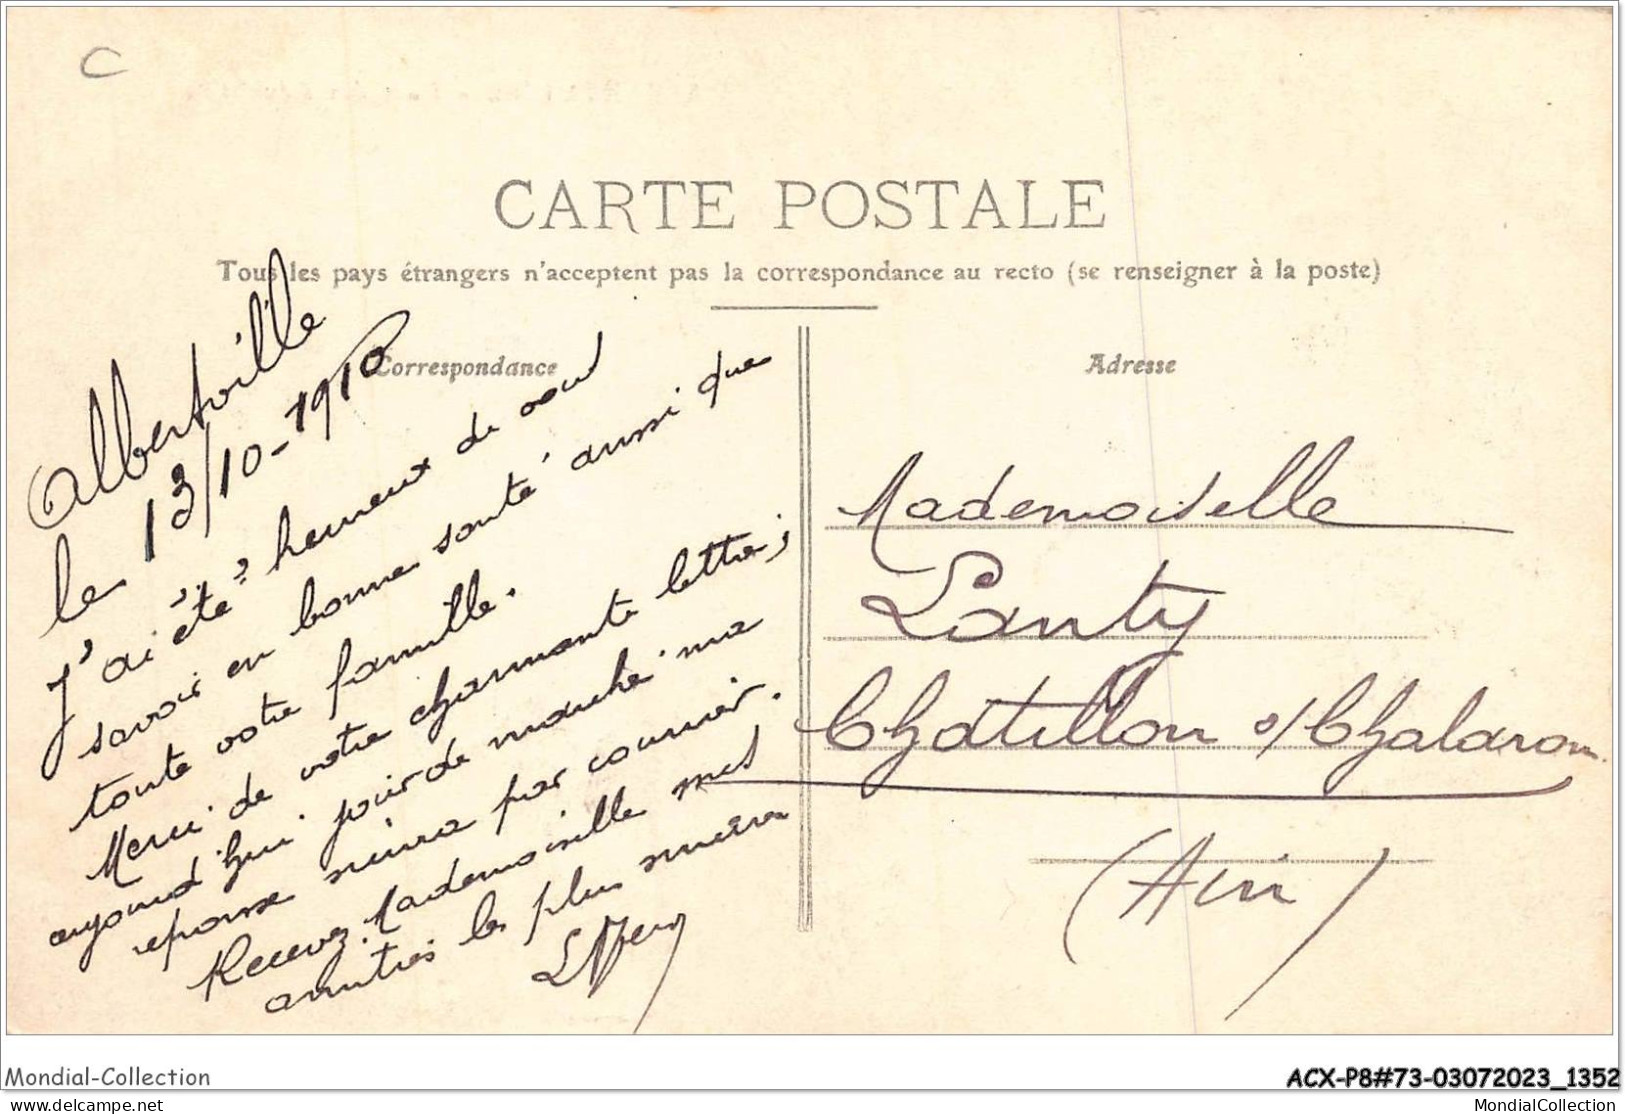 C
CARTE POSTALE
Tous les pays étrangers n'acceptent pas la correspondance au recto (se renseigner à la poste)
Correspondance
Albertville
le 13/10-1910
J'ai été heureux de vous
savoir en bonne santé aussi que
toute votre famille.
Merci de votre charmante lettre;
aujourd'hui jour de marché ma
réponse suivra par courrier.
Recevez Mademoiselle mes
amitiés les plus sincères
Adresse
Mademoiselle
Lanty
Châtillon s/Chalaronne
(Ain)
Mondial-Collection
ACX-P8#73-03072023_1352
delcampe.net
MondialCollection